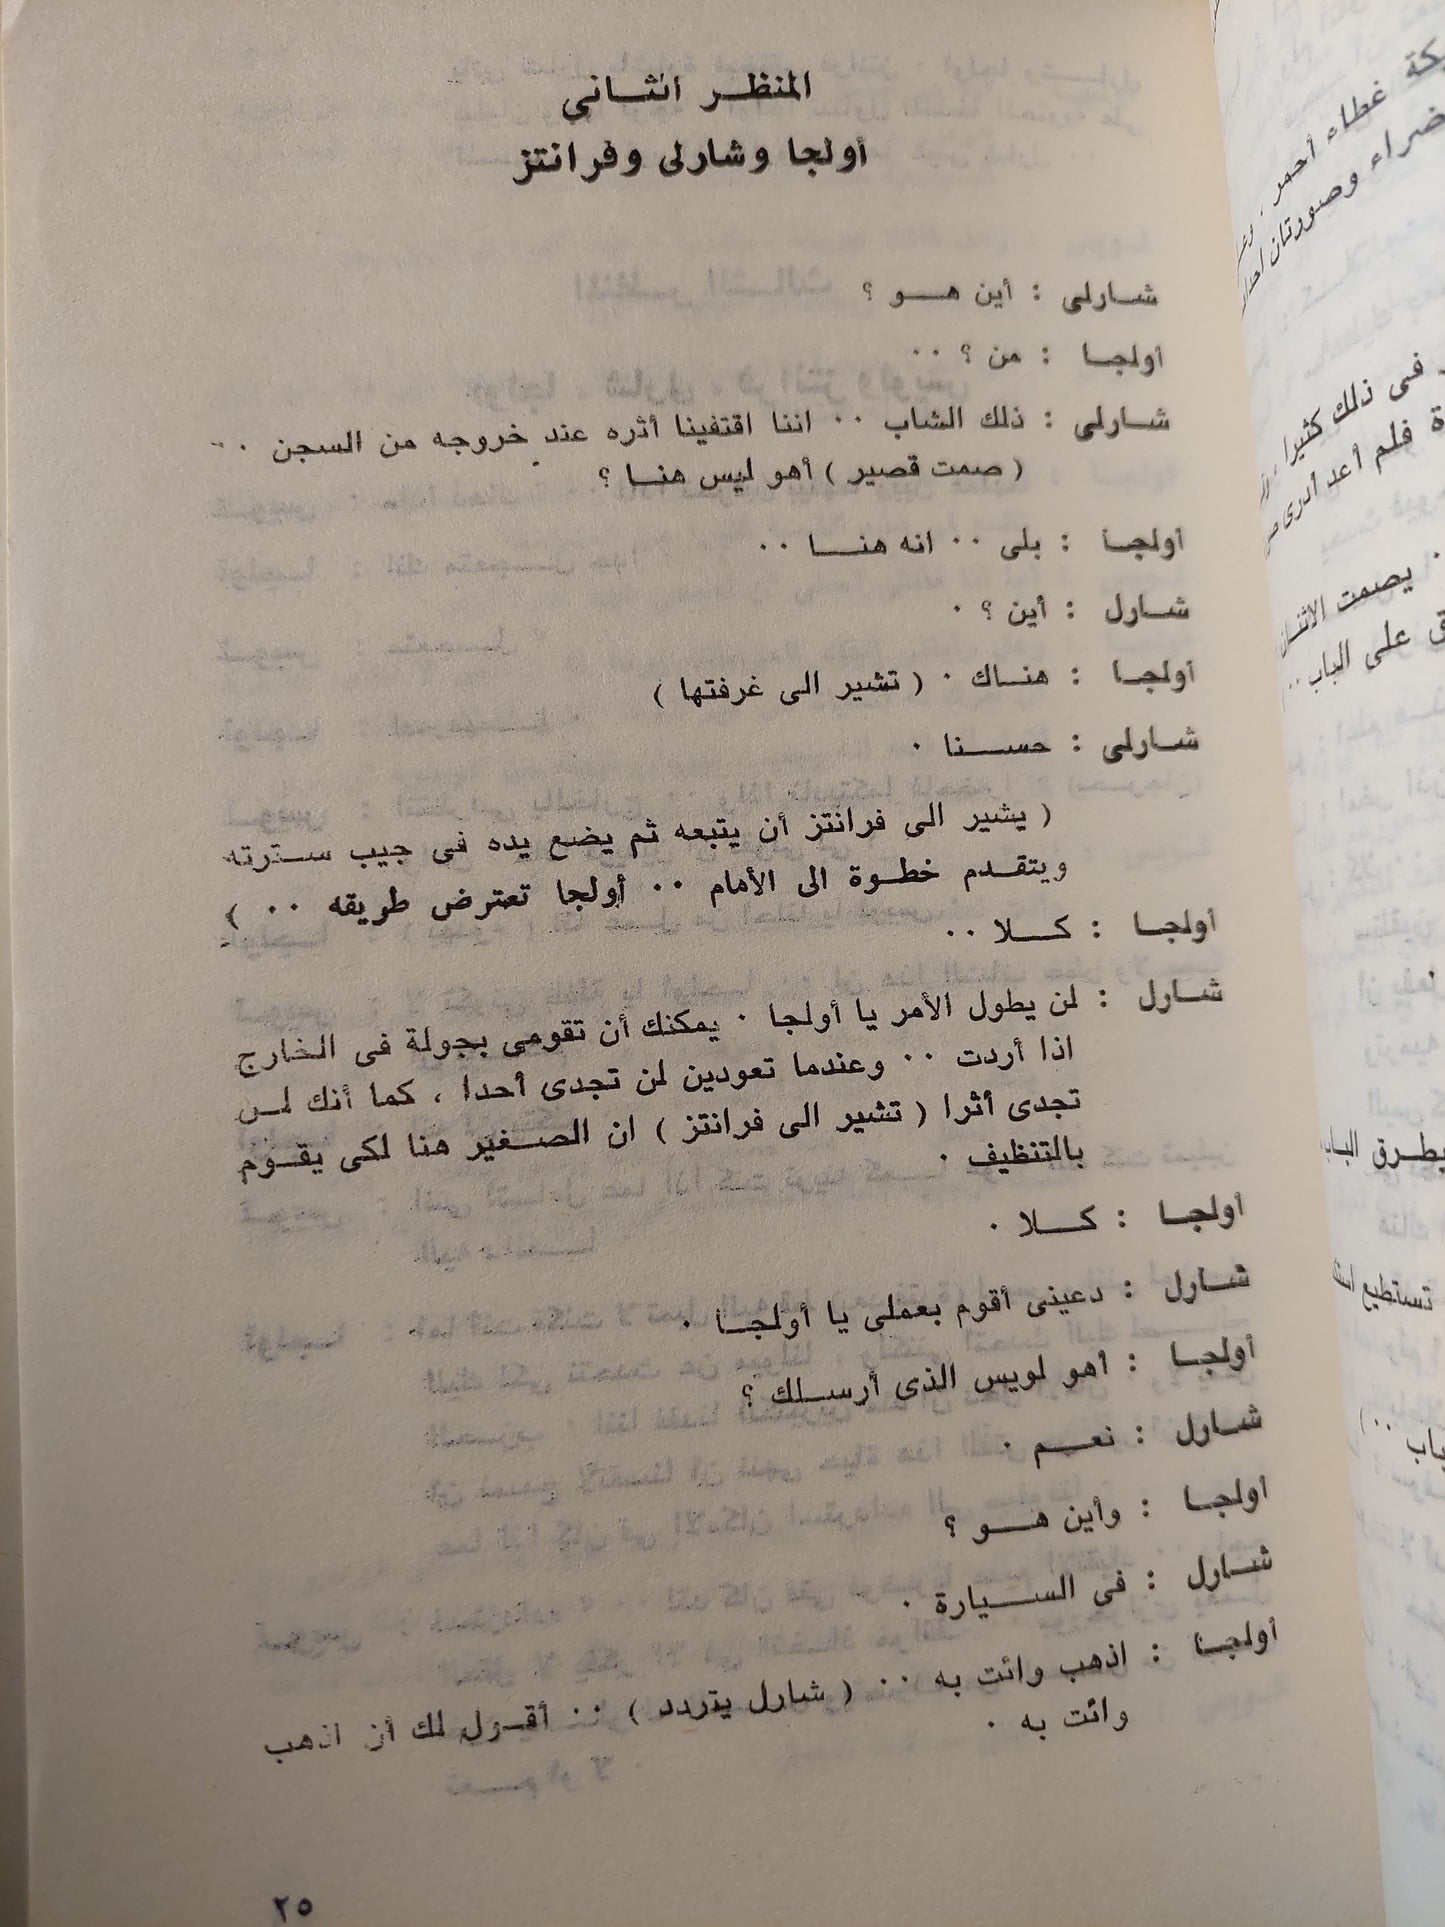 المنظر الثاني
أولجا وشارلى وفرانتز
شارلى : أين هو ؟
أولجا : من ؟ ٠٠
شارلى : ذلك الشاب ٠٠ اننا اقتفينا أثره عند خروجه من السجن ٠٠
( صمت قصير ) أهو ليس هنا ؟
أولجا : بلى ٠٠ انه هنا ٠٠
شارل : أين ؟ ٠
أولجا : هناك ٠ ( تشير الى غرفتها )
شارلى : حسنا ٠
( يشير الى فرانتز أن يتبعه ثم يضع يده فى جيب سترته
ويتقدم خطوة الى الأمام ٠٠ أولجا تعترض طريقه ٠٠ )
أولجا : كلا ٠٠
شارل : لن يطول الأمر يا أولجا ٠ يمكنك أن تقومى بجولة فى الخارج
اذا أردت ٠٠ وعندما تعودين لن تجدى أحدا ، كما أنك لن
تجدى أثرا ( تشير الى فرانتز ) ان الصغير هنا لكى يقوم
بالتنظيف ٠
أولجا : كلا ٠
شارل : دعينى أقوم بعملى يا أولجا ٠
أولجا : أهو لويس الذى أرسلك ؟
شارل : نعم ٠
أولجا : وأين هو ؟
شارل : فى السيارة ٠
أولجا : اذهب وائت به ٠٠ ( شارل يتردد ) ٠٠ أقول لك أن اذهب
وائت به ٠
٢٥
غطاء أحمر ،
وصورتان
فى ذلك كثيرا ،
فلم أعد أدرى
٠ يصمت الاثنان
على الباب ٠٠
يطرق الباب
تستطيع